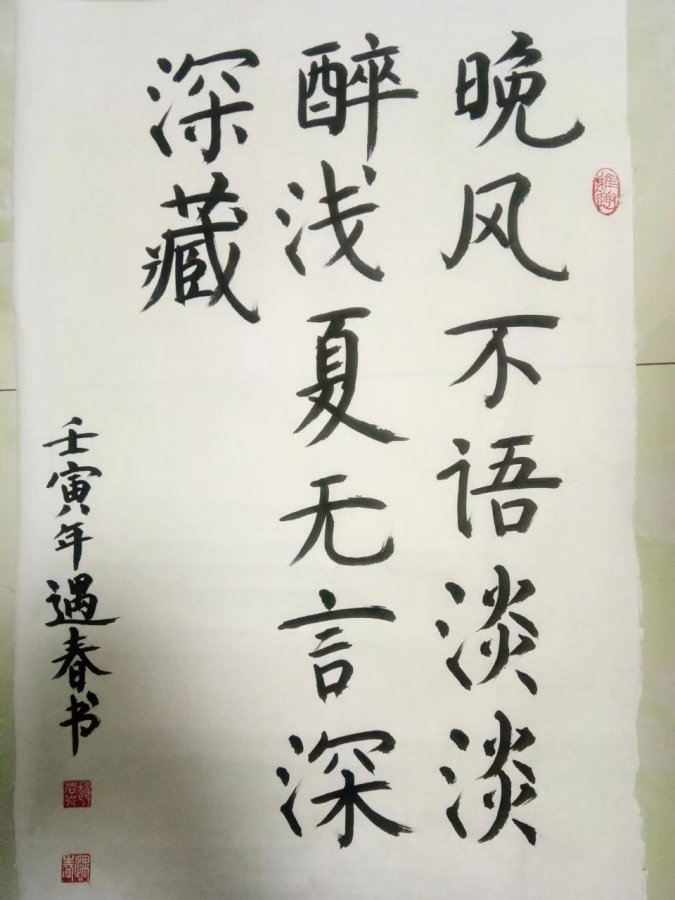 晚风不语淡淡
醉浅夏无言深
深藏
壬寅年遇春书